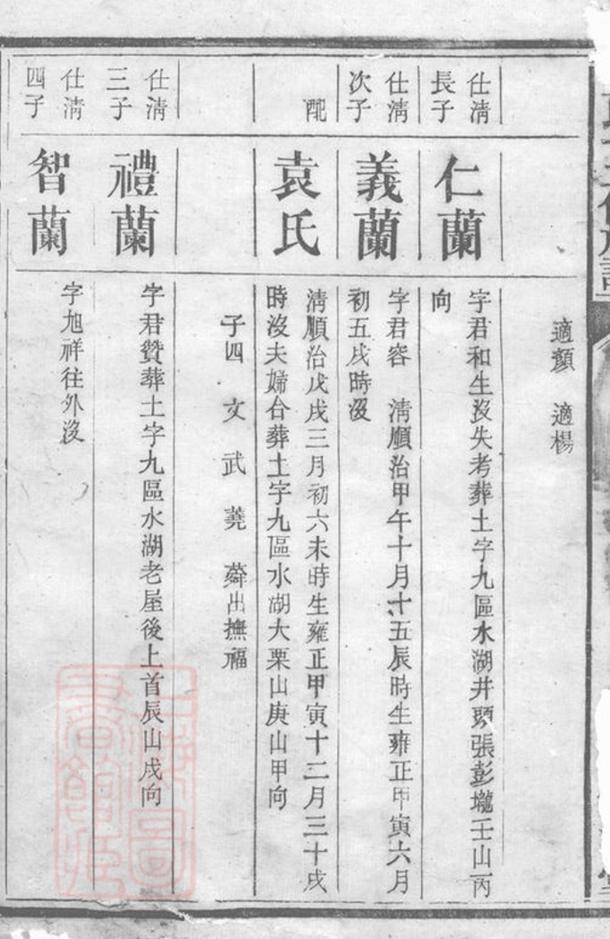 適顏 適楊
仕清
長子
仁蘭
字君和生沒失考葬土字九區水湖井頭張彭壠壬山丙
向
仕清
次子
義蘭
字君容 清順治甲午十月十五辰時生雍正甲寅六月
初五戌時沒
配
袁氏
清順治戊戌三月初六未時生雍正甲寅十二月三十戌
時沒夫婦合葬土字九區水湖大栗山庚山甲向
子四 文 武 蕘 蕣出撫福
仕清
三子
禮蘭
字君贊葬土字九區水湖老屋後上首辰山戌向
仕清
四子
智蘭
字旭祥往外沒